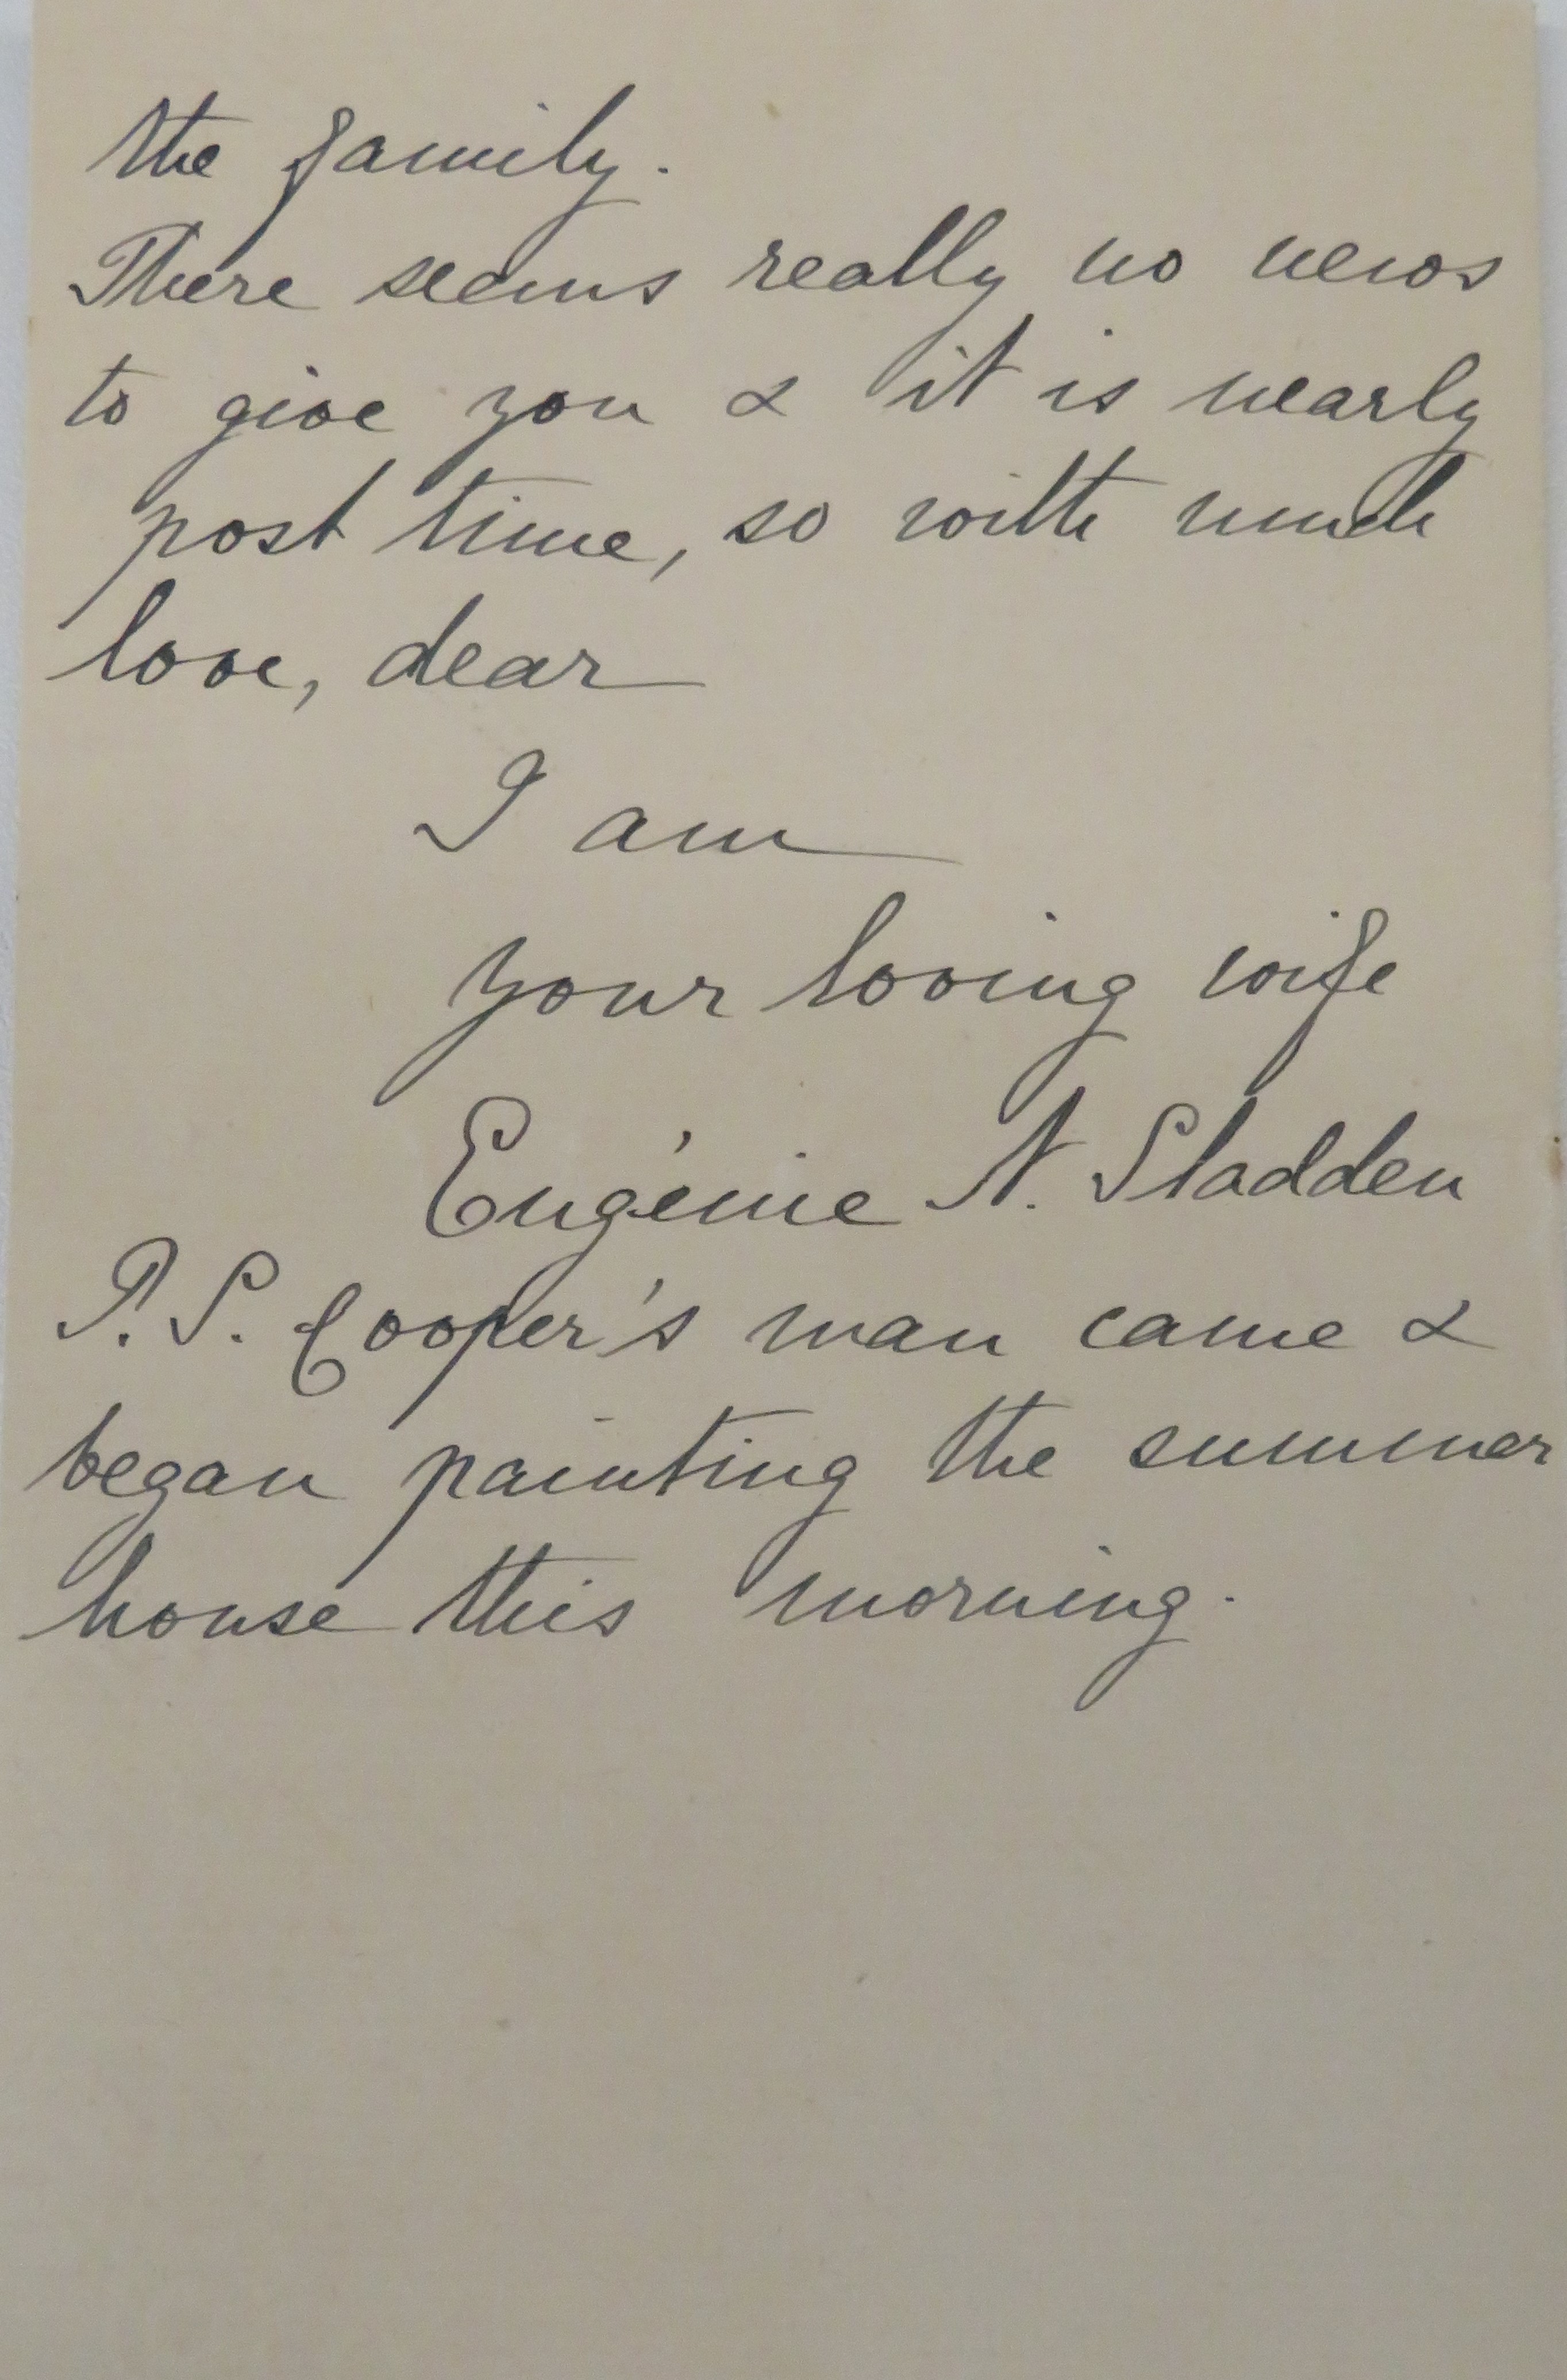 the family.
There seems really no news
to give you & it is nearly
post time, so with much
love, dear
I am
your loving wife
Eugénie N. Sladden
P.S. Cooper's man came &
began painting the summer
house this morning.